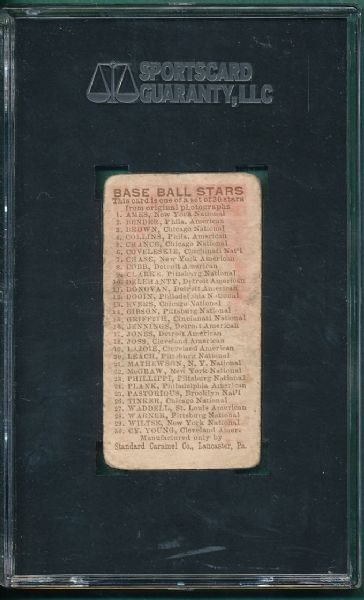 SPORTSCARD
GUARANTY, LLC
BASE BALL STARS
This card is one of a set of 30 stars
from original photographs
1. AMES, New York National
2. BENDER, Phila. American
3. BROWN, Chicago National
4. COLLINS, Phila. American
5. CHANCE, Chicago National
6. COVELESKIE, Cincinnati Nat'l
7. CHASE, New York American
8. COBB, Detroit American
9. CLARKE, Pittsburg National
10. DELEHANTY, Detroit American
11. DONOVAN, Detroit American
12. DOOIN, Philadelphia National
13. EVERS, Chicago National
14. GIBSON, Pittsburg National
15. GRIFFITH, Cincinnati National
16. JENNINGS, Detroit American
17. JONES, Detroit American
18. JOSS, Cleveland American
19. LAJOIE, Cleveland American
20. LEACH, Pittsburg National
21. MATHEWSON, N. Y. National
22. McGRAW, New York National
23. PHILLIPPI, Pittsburg National
24. PLANK, Philadelphia American
25. PASTORIOUS, Brooklyn Nat'l
26. TINKER, Chicago National
27. WADDELL, St. Louis American
28. WAGNER, Pittsburg National
29. WILTSE, New York National
30. CY. YOUNG, Cleveland Amer.
Manufactured only by
Standard Caramel Co., Lancaster, Pa.